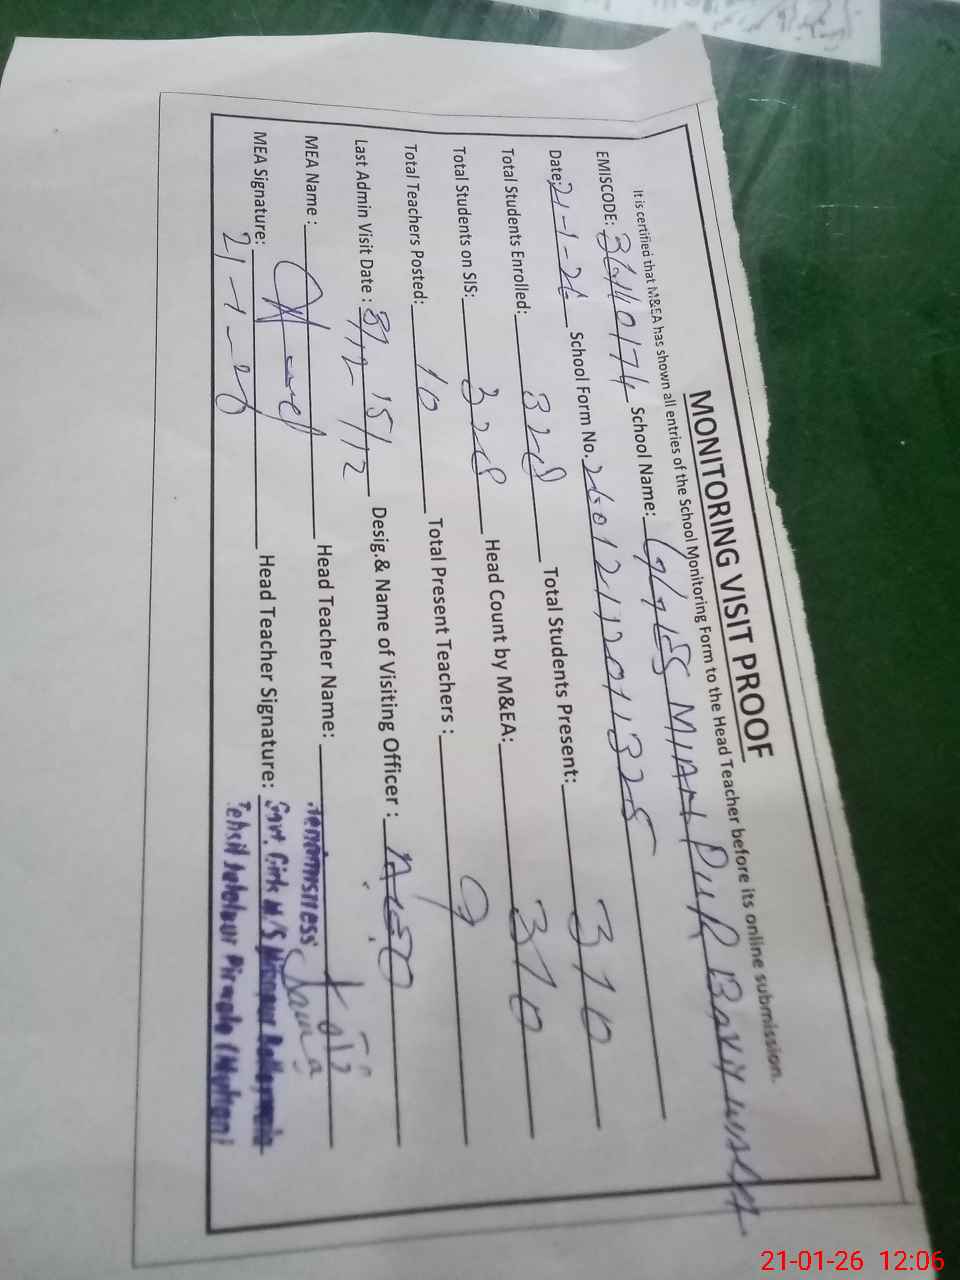 MONITORING VISIT PROOF
It is certified that M&EA has shown all entries of the School Monitoring Form to the Head Teacher before its online submission.
EMISCODE: 36110174 School Name: GGES MIAN PUR
Date: 21-1-26 School Form No.
Total Students Enrolled: 328 Total Students Present: 310
Total Students on SIS: 328 Head Count by M&EA: 310
Total Teachers Posted: 10 Total Present Teachers : 9
Last Admin Visit Date : 15/12 Desig.& Name of Visiting Officer : AEO
MEA Name : Head Teacher Name:
MEA Signature: 21-1-26 Head Teacher Signature:
Govt. Girls M/S
Tehsil Jalalpur Pirwala (Multan)
21-01-26 12:06